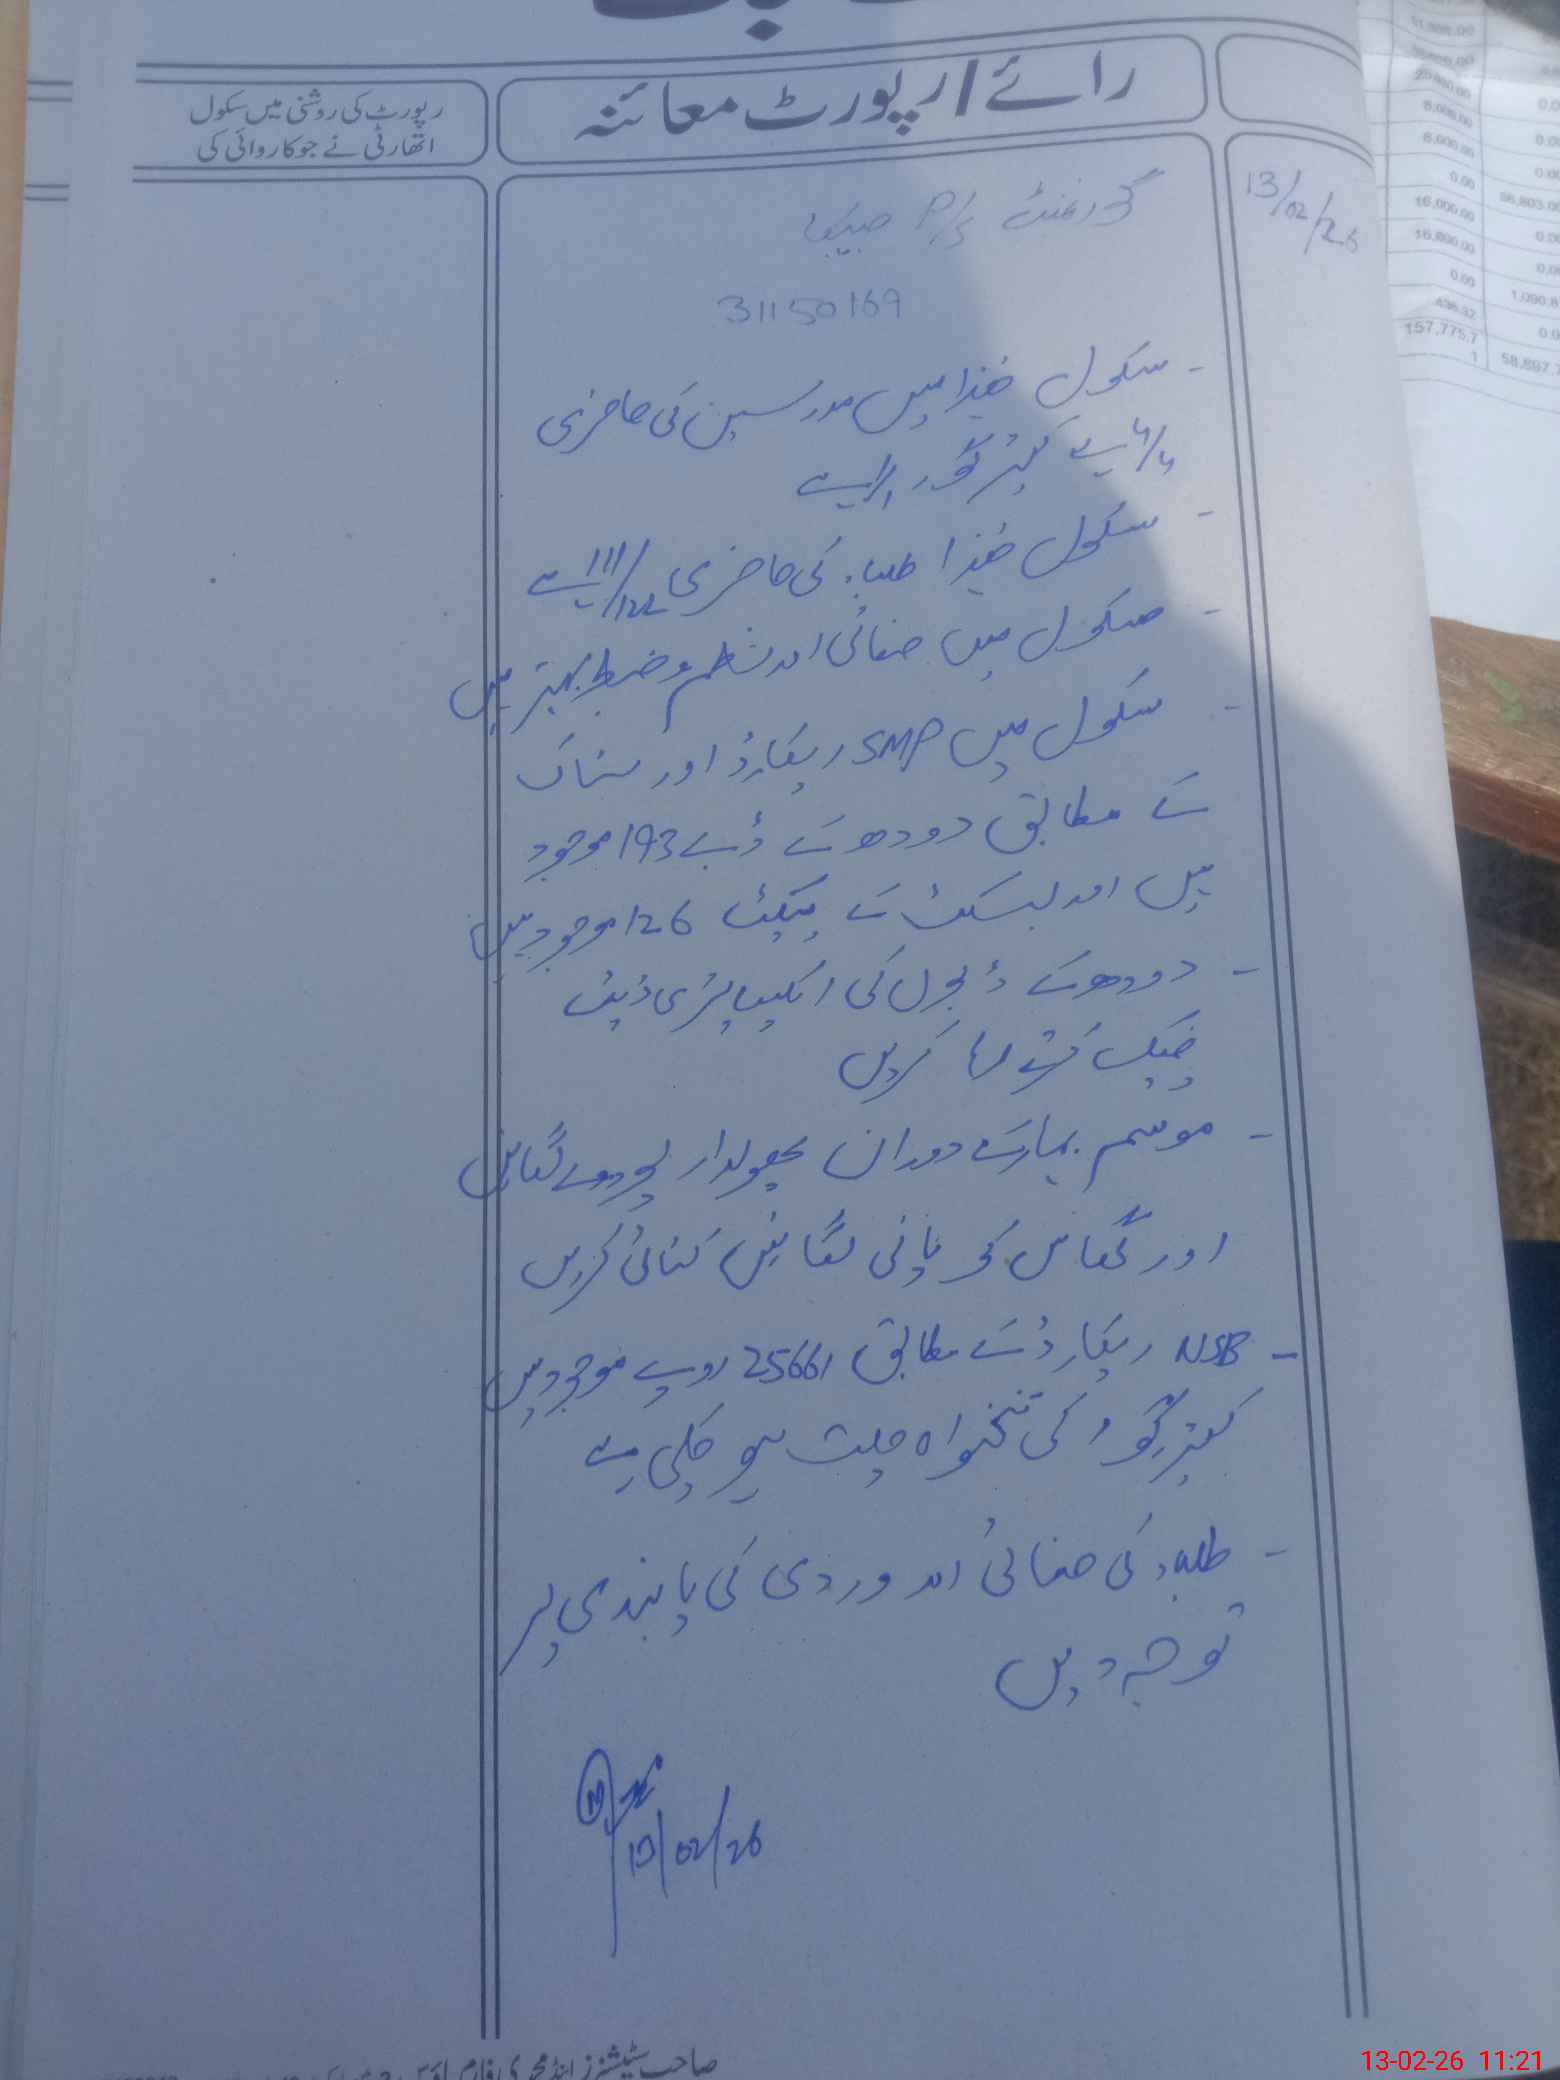 رائے / رپورٹ معائنہ
رپورٹ کی روشنی میں سکول
اتھارٹی نے جو کاروائی کی
13/02/26
گورنمنٹ P/S
31150169
- سکول ھٰذا میں مدرسین کی حاضری
4/4 ہے کیئر گور 1/1 ہے
- سکول ھٰذا طلباء کی حاضری 111/122 ہے
- سکول میں صفائی اور نظم و ضبط بہتر ہیں
- سکول میں SMP ریکارڈ اور سٹاک
کے مطابق دودھ کے ڈبے 193 موجود
ہیں اور بسکٹ کے پیکٹ 126 موجود ہیں
- دودھ کے ڈبوں کی ایکسپائری ڈیٹ
چیک کرتے رہا کریں
- موسم بہار کے دوران پھولدار پودے لگائیں
اور گھاس کو پانی لگائیں کٹائی کریں
- NSB ریکارڈ کے مطابق 25661 روپے موجود ہیں
کیئر گور کی تنخواہ ہو چکی ہے
- طلباء کی صفائی اور وردی کی پابندی پر
توجہ دیں
13/02/26
51,888.00
8,000.00
8,000.00
0.00
16,000.00
16,800.00
0.00
436.32
157,775.7
1
56,803.00
1,090.8
58,897.7
صاحب سٹیشنرز اینڈ
13-02-26 11:21